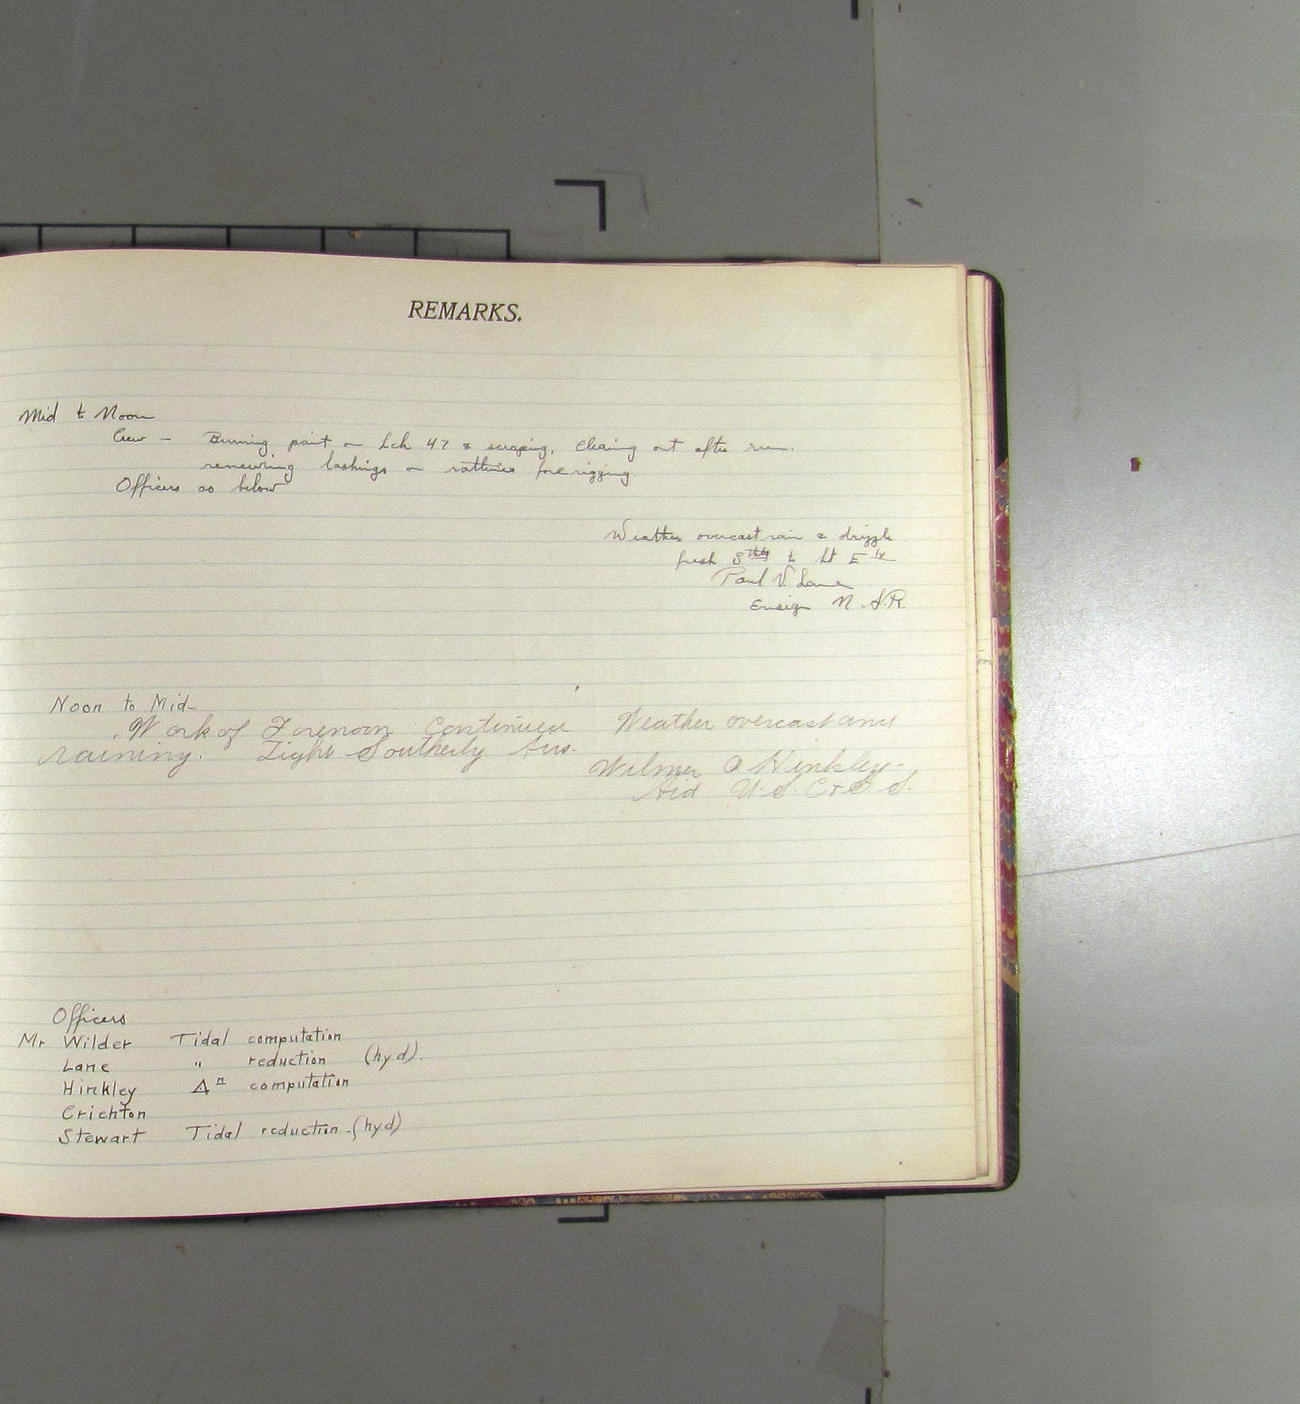 REMARKS.
Mid to Noon
Crew - Burning paint on Lch 47 & scraping, cleaning out after run.
renewing lashings on ratlines fore rigging
Officers as below
Weather overcast rain & drizzle
fresh to lt E ly
Paul V. Lane
Ensign N.N.R.
Noon to Mid-
Work of Forenoon Continued Weather overcast and
raining. Light Southerly Airs.
Wilmer O Hinkley-
Aid U.S.C&G.S.
Officers
Mr Wilder Tidal computation
Lane " reduction (hyd).
Hinkley Δn computation
Crichton
Stewart Tidal reduction. (hyd)